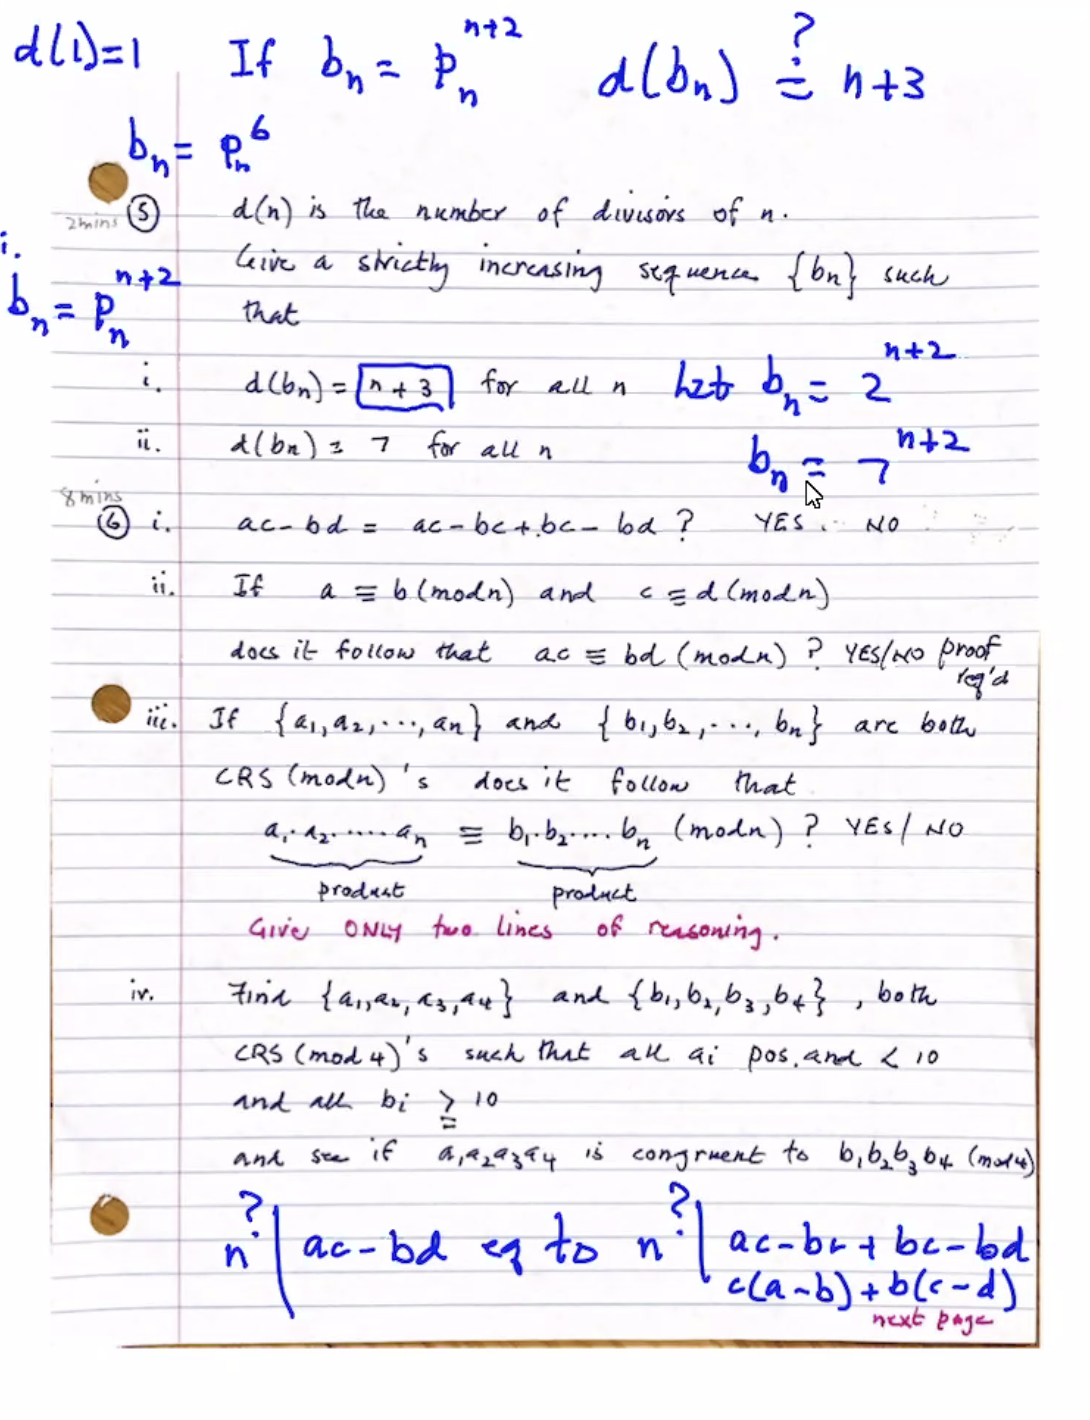 d(1)=1 If bₙ = pₙⁿ⁺² d(bₙ) ≟ n+3
bₙ = pₙ⁶
2mins ⑤ d(n) is the number of divisors of n.
Give a strictly increasing sequence {bn} such
that
i.
bₙ = pₙⁿ⁺²
i. d(bn) = n + 3 for all n Let bₙ = 2ⁿ⁺²
ii. d(bn) = 7 for all n bₙ = 7ⁿ⁺²
8mins
⑥ i. ac - bd = ac - bc + bc - bd ? YES. NO
ii. If a ≡ b (mod n) and c ≡ d (mod n)
does it follow that ac ≡ bd (mod n) ? YES/NO proof
req'd
iii. If {a₁, a₂, ..., aₙ} and {b₁, b₂, ..., bₙ} are both
CRS (mod n)'s does it follow that
a₁.a₂.....aₙ ≡ b₁.b₂....bₙ (mod n) ? YES/NO
product product
Give ONLY two lines of reasoning.
iv. Find {a₁, a₂, a₃, a₄} and {b₁, b₂, b₃, b₄}, both
CRS (mod 4)'s such that all ai pos. and < 10
and all bi ≧ 10
and see if a₁a₂a₃a₄ is congruent to b₁b₂b₃b₄ (mod 4)
n ?| ac - bd eq to n ?| ac - bc + bc - bd
c(a-b) + b(c-d)
next page